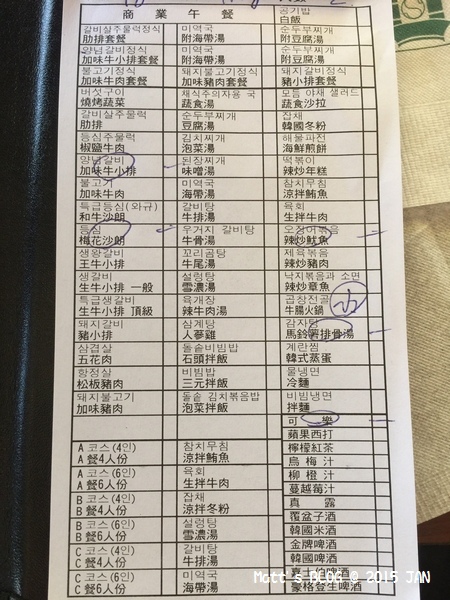 商業午餐
공기밥
白飯
갈비살주물럭정식
肋排套餐
미역국
附海帶湯
순두부찌개
附豆腐湯
양념갈비정식
加味牛小排套餐
미역국
附海帶湯
순두부찌개
附豆腐湯
불고기정식
加味牛肉套餐
돼지불고기정식
加味豬肉套餐
돼지갈비정식
豬小排套餐
버섯구이
燒烤蔬菜
채식주의자용 국
蔬食湯
모듬 야채 샐러드
蔬食沙拉
갈비살주물럭
肋排
순두부찌개
豆腐湯
잡채
韓國冬粉
등심주물럭
椒鹽牛肉
김치찌개
泡菜湯
해물파전
海鮮煎餅
양념갈비
加味牛小排
된장찌개
味噌湯
떡볶이
辣炒年糕
불고기
加味牛肉
미역국
海帶湯
참치무침
涼拌鮪魚
특급등심(와규)
和牛沙朗
갈비탕
牛排湯
육회
生拌牛肉
등심
梅花沙朗
우거지 갈비탕
牛骨湯
오징어볶음
辣炒魷魚
생왕갈비
王牛小排
꼬리곰탕
牛尾湯
제육볶음
辣炒豬肉
생갈비
生牛小排 一般
설렁탕
雪濃湯
낙지볶음과 소면
辣炒章魚
특급생갈비
生牛小排 頂級
육개장
辣牛肉湯
곱창전골
牛腸火鍋
돼지갈비
豬小排
삼계탕
人蔘雞
감자탕
馬鈴薯排骨湯
삼겹살
五花肉
돌솥비빔밥
石頭拌飯
계란찜
韓式蒸蛋
항정살
松板豬肉
비빔밥
三元拌飯
물냉면
冷麵
돼지불고기
加味豬肉
돌솥 김치볶음밥
泡菜拌飯
비빔냉면
拌麵
可樂
蘋果西打
檸檬紅茶
烏梅汁
柳橙汁
蔓越莓汁
真露
覆盆子酒
韓國米酒
金牌啤酒
韓國啤酒
豪格登生啤酒
A 코스 (4인)
A 餐4人份
참치무침
涼拌鮪魚
A 코스 (6인)
A 餐6人份
육회
生拌牛肉
B 코스 (4인)
B 餐4人份
잡채
涼拌冬粉
B 코스 (6인)
B 餐6人份
설렁탕
雪濃湯
C 코스 (4인)
C 餐4人份
갈비탕
牛排湯
C 코스 (6인)
C 餐6人份
미역국
海帶湯
Matt's BLOG @ 2015 JAN